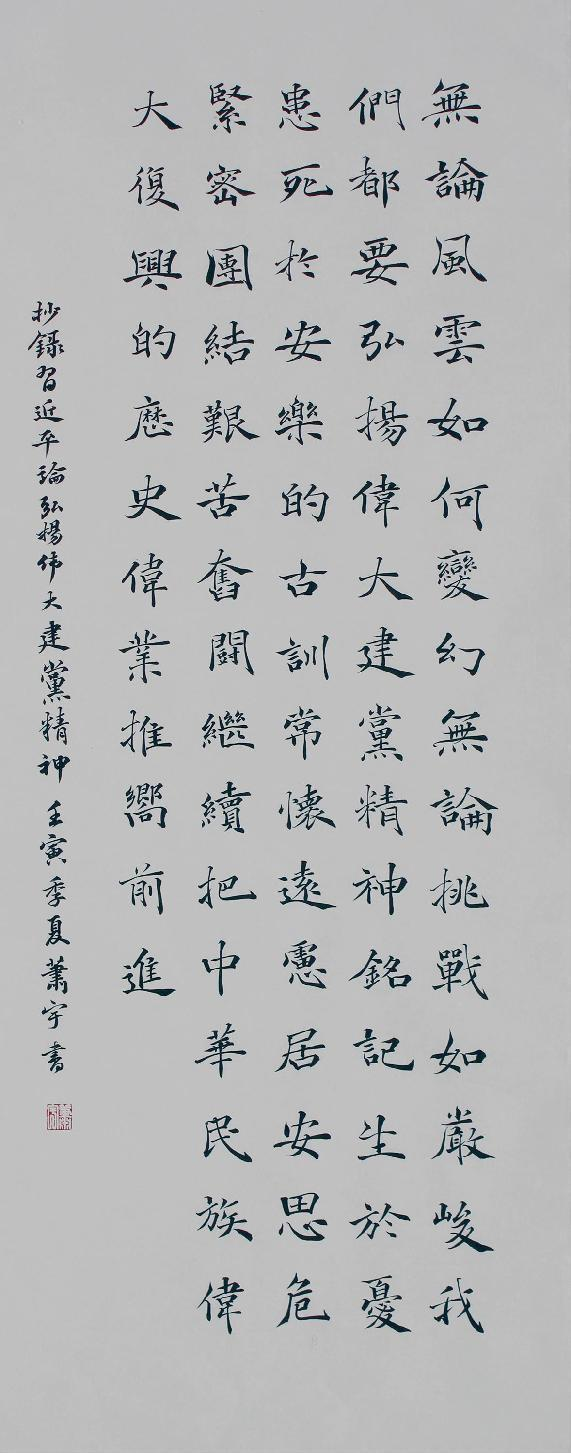 無論風雲如何變幻無論挑戰如厳峻我
們都要弘揚偉大建黨精神銘記生於憂
患死於安樂的古訓常懷遠慮居安思危
緊密團結艱苦奮鬭繼續把中華民族偉
大復興的歷史偉業推嚮前進
抄錄習近平論弘揚伟大建黨精神 壬寅季夏蕭宇書